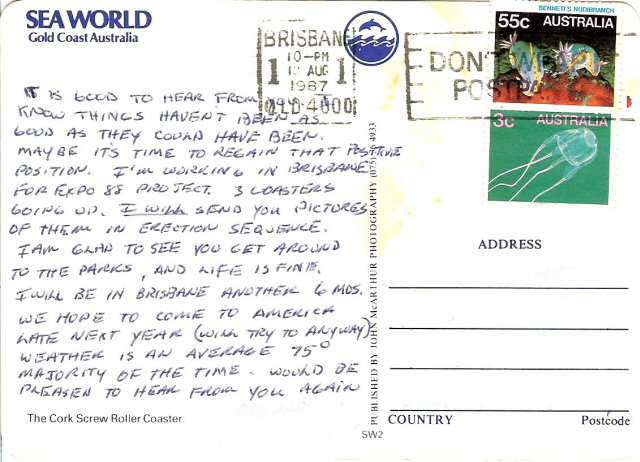 SEA WORLD
Gold Coast Australia
BRISBANE
10-PM
1 AUG 1
1987
QLD-4000
DON'T
POST
BENNETT'S NUDIBRANCH
55c AUSTRALIA
3c AUSTRALIA
IT IS GOOD TO HEAR FROM
KNOW THINGS HAVENT BEEN AS
GOOD AS THEY COULD HAVE BEEN.
MAYBE IT'S TIME TO REGAIN THAT POSITIVE
POSITION. I'M WORKING IN BRISBANE
FOR EXPO 88 PROJECT. 3 COASTERS
GOING UP. I WILL SEND YOU PICTURES
OF THEM IN ERECTION SEQUENCE.
I AM GLAD TO SEE YOU GET AROUND
TO THE PARKS, AND LIFE IS FINE.
I WILL BE IN BRISBANE ANOTHER 6 MOS.
WE HOPE TO COME TO AMERICA
LATE NEXT YEAR (WILL TRY TO ANYWAY)
WEATHER IS AN AVERAGE 75°
MAJORITY OF THE TIME. WOULD BE
PLEASED TO HEAR FROM YOU AGAIN
The Cork Screw Roller Coaster.
PUBLISHED BY JOHN McARTHUR PHOTOGRAPHY (075) 4933
SW2
ADDRESS
COUNTRY Postcode